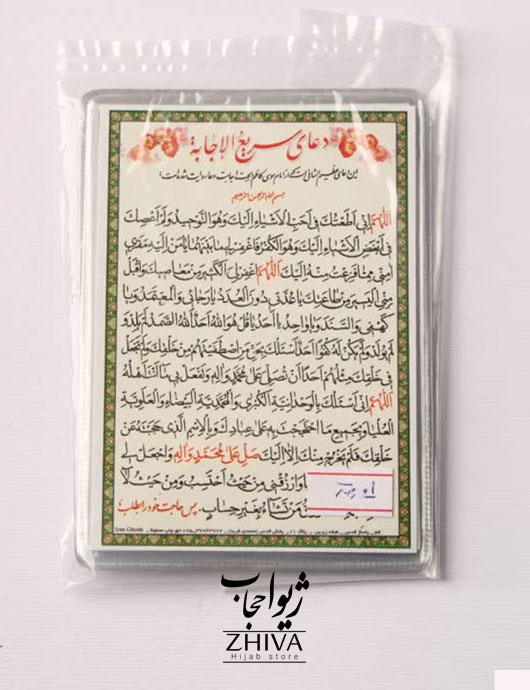 دعای سریع الإجابة
بسم الله الرحمن الرحیم
اَللّهُمَّ اِنّی اَطَعْتُكَ فی اَحَبِّ الْاَشْیاءِ اِلَیْكَ وَهُوَ التَّوْحیدُ وَلَمْ اَعْصِكَ
فی اَبْغَضِ الْاَشْیاءِ اِلَیْكَ وَهُوَ الْكُفْرُ فَاغْفِرْ لی ما بَیْنَهُما یا مَنْ اِلَیْهِ مَفَرّی
امِنّی مِمّا فَزِعْتُ مِنْهُ اِلَیْكَ اَللّهُمَّ اغْفِرْ لِیَ الْكَثیرَ مِنْ مَعاصیكَ وَاقْبَلْ
مِنِّی الْیَسیرَ مِنْ طاعَتِكَ یا عُدَّتی دُونَ الْعُدَدِ یا رَجائی وَالْمُعْتَمَدَ وَیا
كَهْفی وَالسَّنَدَ وَیا واحِدُ یا اَحَدُ یا قُلْ هُوَ اللهُ اَحَدٌ اَللهُ الصَّمَدُ لَمْ یَلِدْ وَ
لَمْ یُولَدْ وَلَمْ یَكُنْ لَهُ كُفُوًا اَحَدٌ اَسْئَلُكَ بِحَقِّ مَنِ اصْطَفَیْتَهُمْ مِنْ خَلْقِكَ وَلَمْ تَجْعَلْ
فی خَلْقِكَ مِثْلَهُمْ اَحَدًا اَنْ تُصَلِّیَ عَلی مُحَمَّدٍ وَالِهِ وَتَفْعَلَ بی ما اَنْتَ اَهْلُهُ
اَللّهُمَّ اِنّی اَسْئَلُكَ بِالْوَحْدانِیَّةِ الْكُبْری وَالْمُحَمَّدِیَّةِ الْبَیْضاءِ وَالْعَلَوِیَّةِ
الْعُلْیا وَبِجَمیعِ مَا احْتَجَجْتَ بِهِ عَلی عِبادِكَ وَبِالْاِسْمِ الَّذی حَجَبْتَهُ عَنْ
خَلْقِكَ فَلَمْ یَخْرُجْ مِنْكَ اِلّا اِلَیْكَ صَلِّ عَلی مُحَمَّدٍ وَالِهِ وَاجْعَلْ لی
وَارْزُقْنی مِنْ حَیْثُ اَحْتَسِبُ وَمِنْ حَیْثُ لا
مَنْ تَشاءُ بِغَیْرِ حِسابٍ. پس حاجت خود را بطلب
ژیوا حجاب
ZHIVA
Hijab store